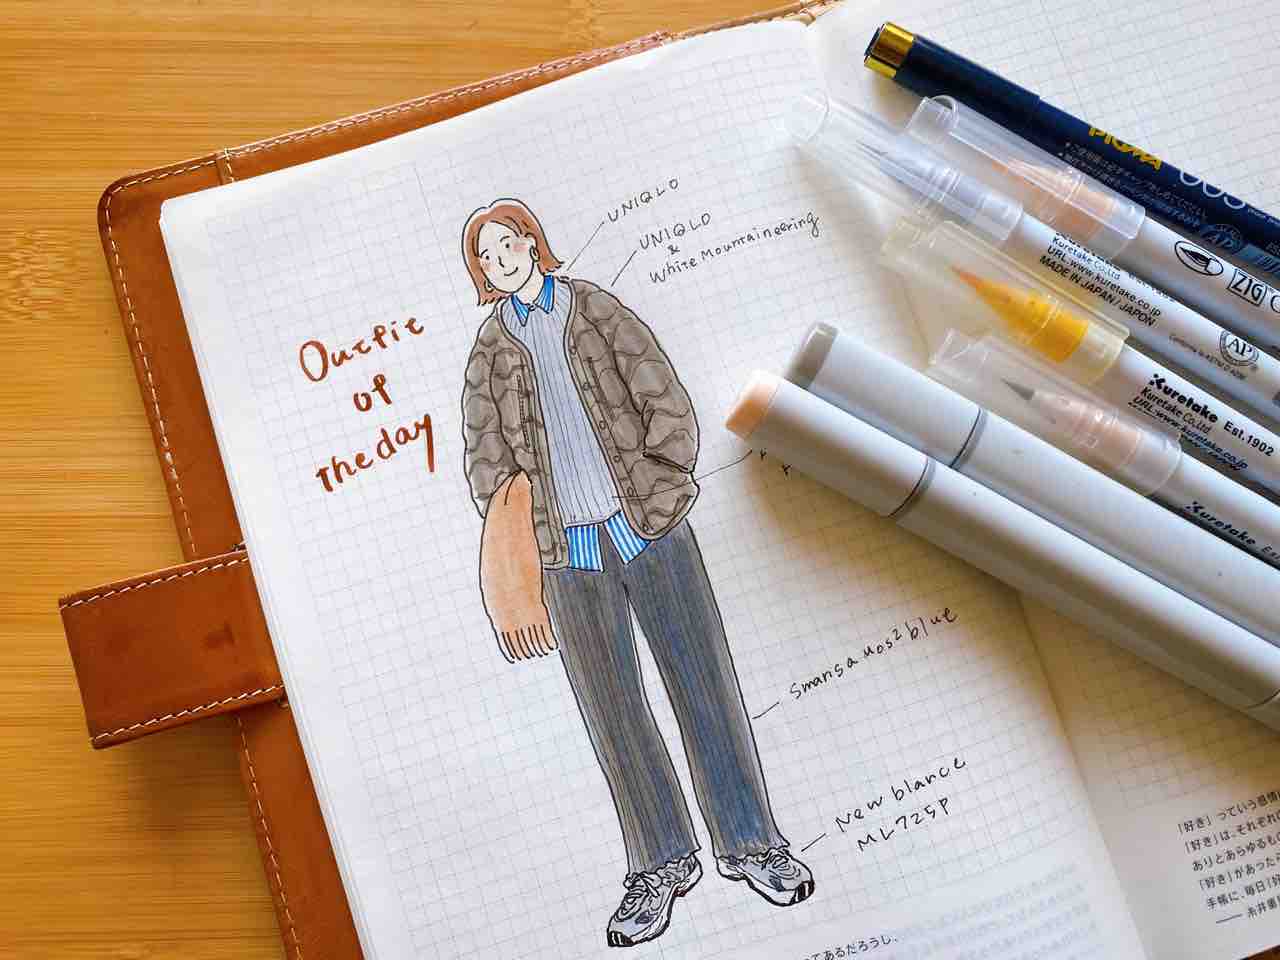 Outfit
of
the day
UNIQLO
UNIQLO
&
White Mountaineering
New blance
ML725P
PIGMA
005
AP
ZIG
Kuretake Co.,Ltd
URL:www.kuretake.co.jp
MADE IN JAPAN / JAPON
AP
Kuretake Est.1902
Kuretake Co.,Ltd.
URL:www.kuretake.co.jp
Kuretake
「好き」っていう感情
「好き」は、それぞれ
ありとあらゆるも
「好き」があった
手帳に、毎日「好
てあるだろうし、